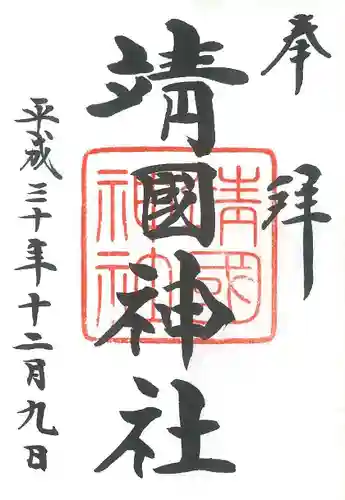 奉拝
靖國神社
靖國神社
平成三十年十二月九日